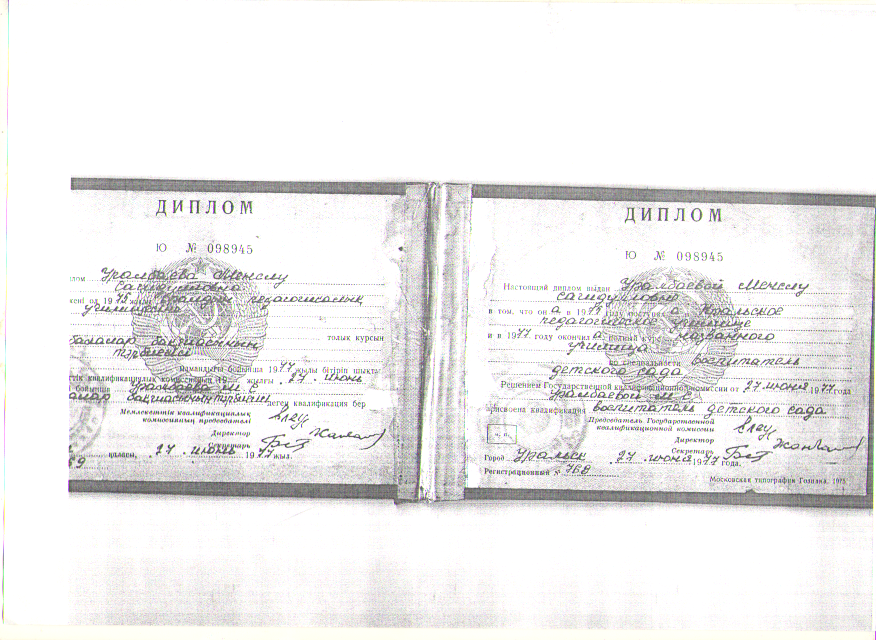 ДИПЛОМ
Ю № 098945
лом Урамбаева Меңслу
Сагидулловна
педагогикалық
училищені
балалар бақшасының толық курсын
тәрбиесі
мамандығы бойынша 1977 жылы бітіріп шықты
квалификациялық комиссияның 19 жылғы „27" июнь
бойынша Урамбаева М. С.
алар бақшасының деген квалификация бер
Мемлекеттік квалификациялық
комиссияның председателі
Директор
Секретарь
қаласы, 27 июнь 1977 жыл.
ДИПЛОМ
Ю № 098945
Настоящий диплом выдан Урамбаевой Менслу
Сагидулловне
в том, что она в 19 году поступила в Уральское
педагогическое училище
и в 1977 году окончила полный курс названного
училища
по специальности воспитатель
детского сада
Решением Государственной квалификационной комиссии от 27 июня 1977 года
Урамбаевой М. С.
присвоена квалификация воспитатель детского сада
Председатель Государственной
квалификационной комиссии
Директор
Секретарь
М. П.
Город Уральск 27 июня 1977 года.
Регистрационный № 768
Московская типография Гознака. 1975.